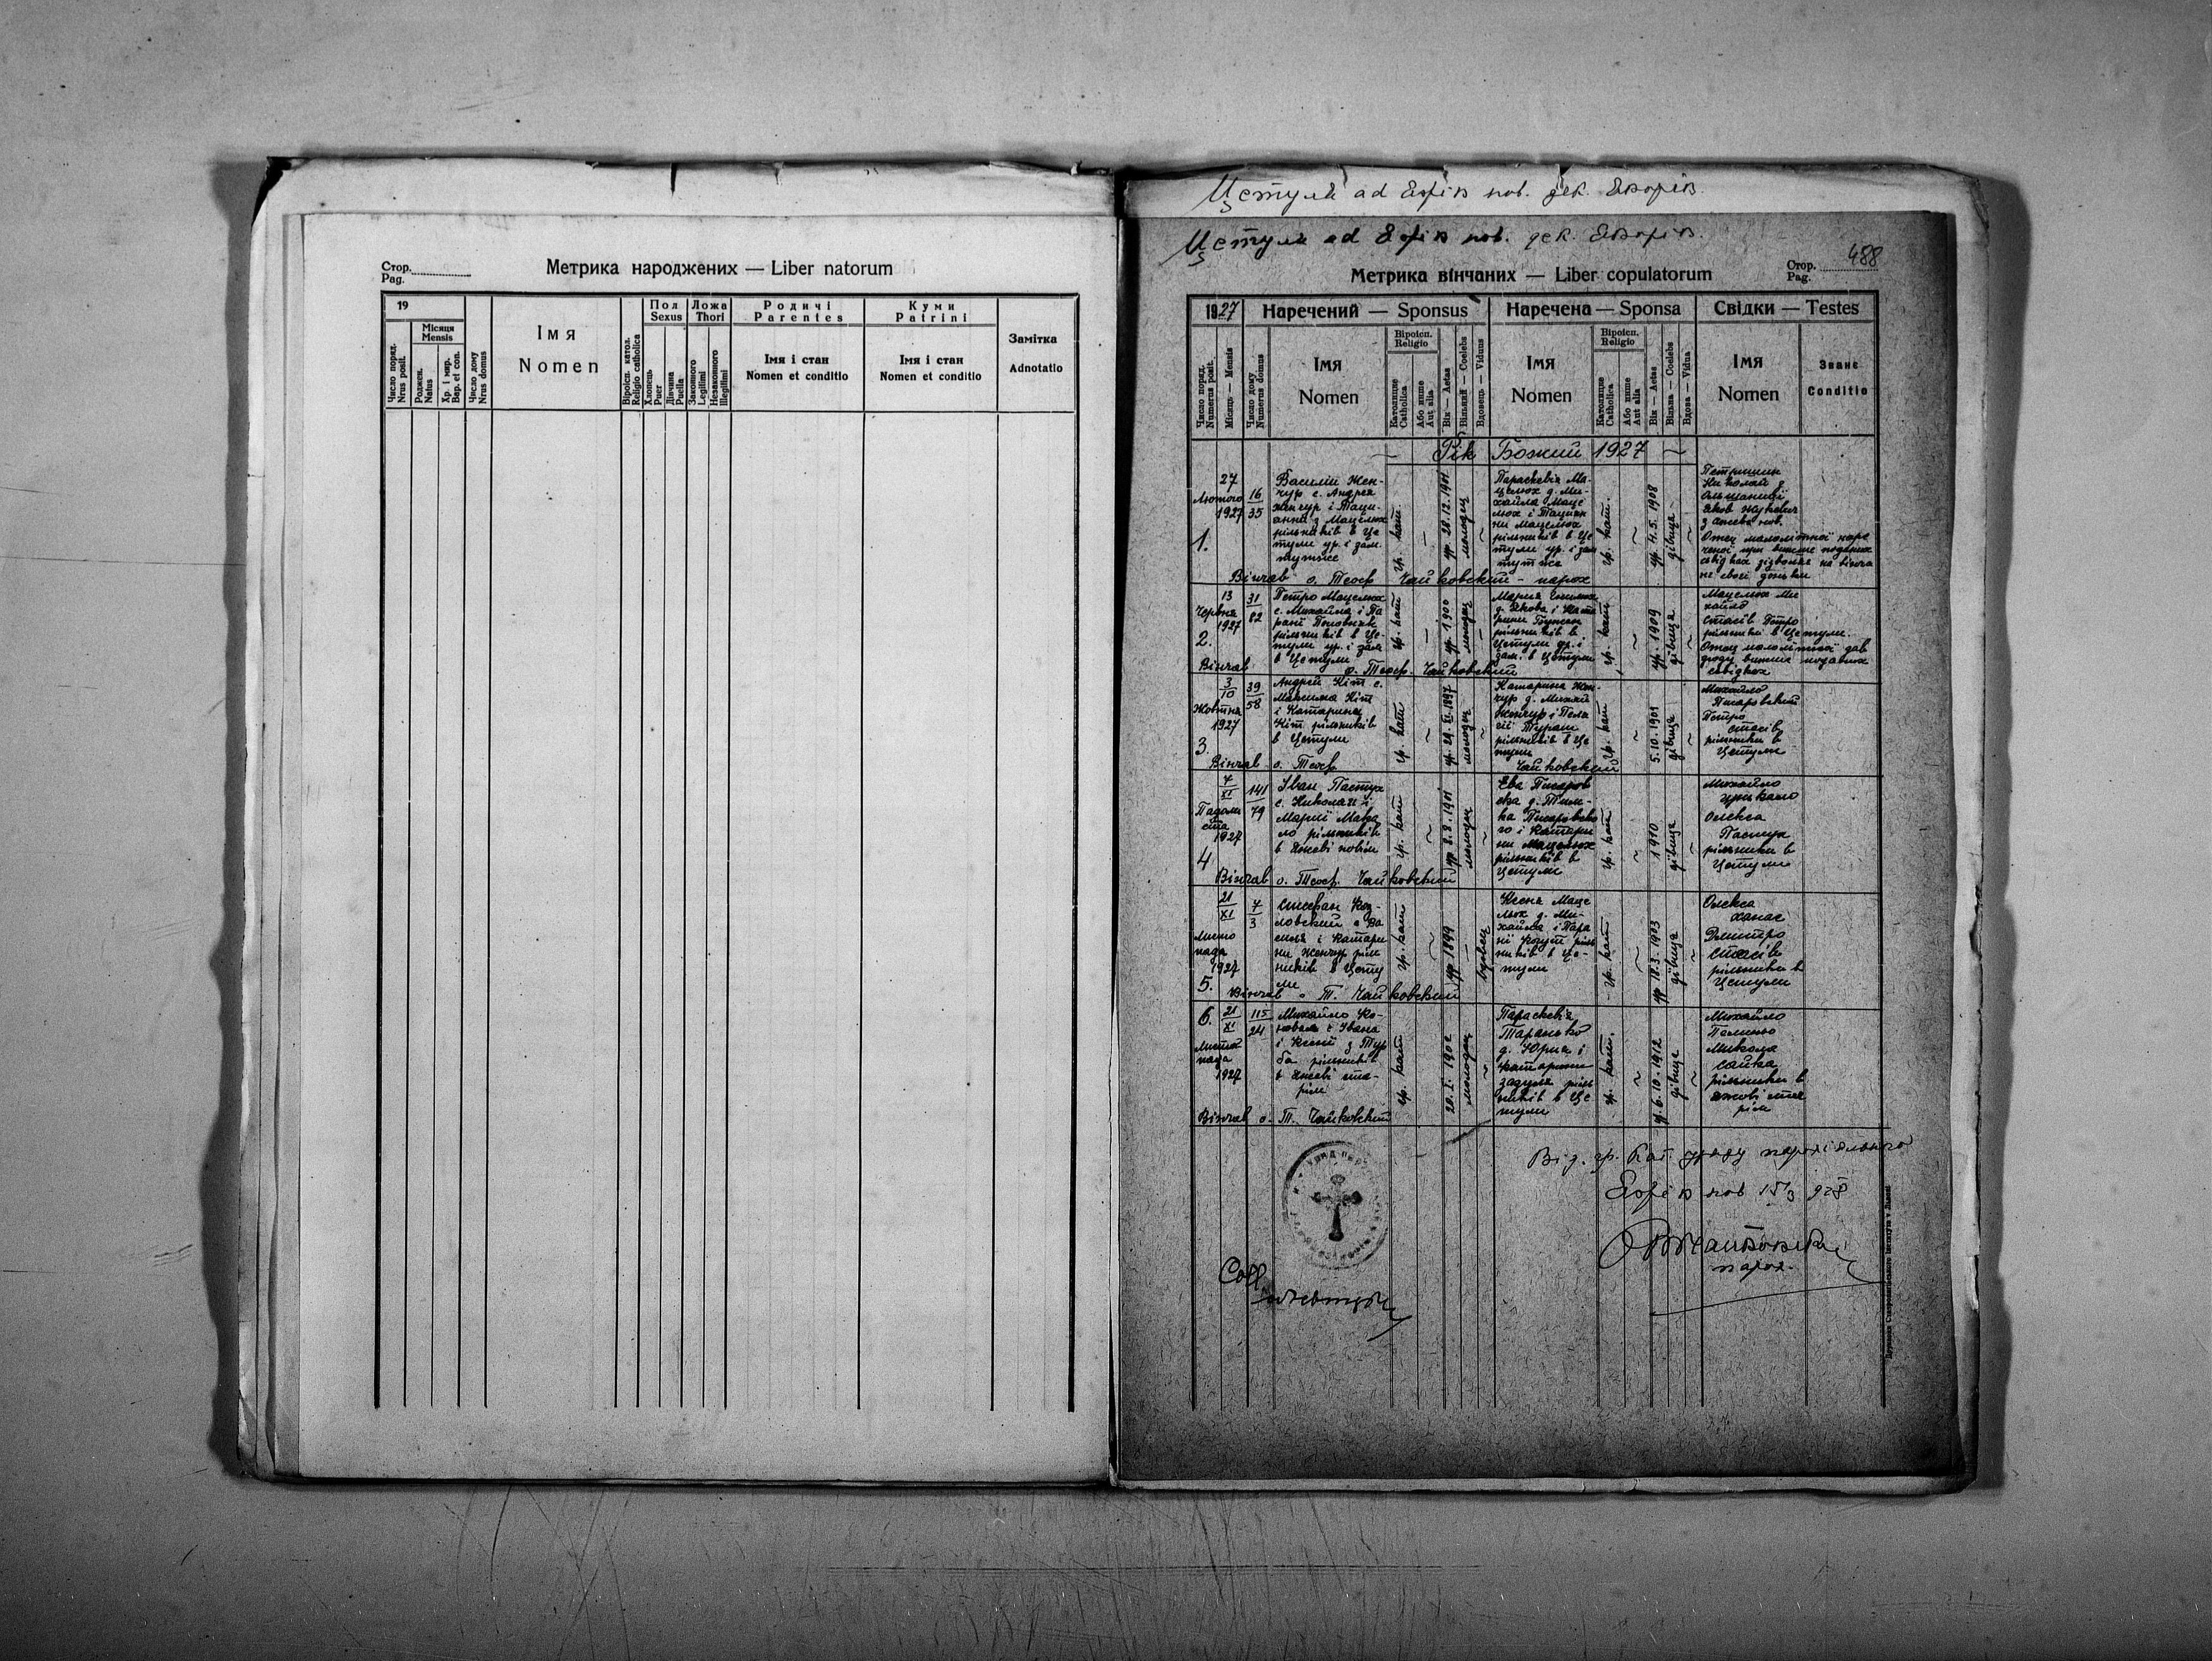 Стор.
Pag.
Метрика народжених — Liber natorum
19
Місяця
Mensis
Число поряд.
Nrus posit.
Роджен.
Natus
Хр. і мир.
Bap. et con.
Число дому
Nrus domus
Імя
Nomen
Віроісп. катол.
Religio catholica
Пол
Sexus
Хлопець
Puer
Дівчина
Puella
Ложа
Thori
Законного
Legitimi
Незаконного
Illegitimi
Родичі
Parentes
Імя і стан
Nomen et conditio
Куми
Patrini
Імя і стан
Nomen et conditio
Замітка
Adnotatio
Цетуля ad нов. дек. Яворів.
Цетуля ad нов. дек. Яворів.
488
Метрика вінчаних — Liber copulatorum
Стор.
Pag.
1927
Наречений — Sponsus
Наречена — Sponsa
Свідки — Testes
Число поряд.
Numerus posit.
Місяць — Mensis
Число дому
Numerus domus
Імя
Nomen
Віроісп.
Religio
Католицке
Catholica
Або инше
Aut alia
Вік — Aetas
Вільний — Coelebs
Вдовець — Viduus
Імя
Nomen
Віроісп.
Religio
Католицке
Catholica
Або инше
Aut alia
Вік — Aetas
Вільна — Coelebs
Вдова — Vidua
Імя
Nomen
Званє
Conditio
Рік Божий 1927
27
Лютого
1927
1.
16
35
Василій Жен-
чур с. Андрея
Женчур і Таци-
анни з Мацелюх
рільників в Це
тули ур. і зам.
тутже
гр. кат
ур. 28.12.1901
молодец
Параскевія Ма-
целюх д. Ми-
хайла Маце
люх і Тациян
ни Мацелюх
рільників в Це
тули ур. і зам
тутже
гр. кат.
ур. 4.5.1908
дівиця
Николай з
Ольшаниці
Яков
Отец малолітної наре
ченої при висше поданих
свідках зізволяє на вінча
нє своєї доньки
Вінчав о. Теоф Чайковский - парох
13
Червня
1927
2.
31
82
Петро Мацелюх
с. Михайла і Па
рані Половчак
рільників в Це-
тули ур. і зам
в Цетули
гр. кат
ур. 1900
молодец
Мария
д. Якова і Кат
рини
рільників в
Цетули ур. і
зам. в Цетули
гр. кат
ур. 1909
дівиця
Мацелюх Ми
хайло
Стасів Петро
рільники в Цетули.
Отец малолітної дав
згоду висше поданих
свідках
Вінчав о. Теоф. Чайковский
3
10
Жовтня
1927
3.
39
58
Андрей Кіт с.
Максима Кіт
і Катарина
Кіт рільників
в Цетули
гр кат
ур. 29.XI.1897
молодец
Катарина Жен-
чур д. Михай
Женчур і Пела
гії Тураш
рільників в Це
тули
гр. кат
5.10.1901
дівиця
Михайло
Писаровский
Петро
Стасів
рільники в
Цетули
Вінчав о. Теоф. Чайковский
7
XI
Падоли
ста
1927
4
141
79
Іван Пастух
с. Николая і
Марії Мака
ло рільників
в Яжеві новім
гр. кат
ур 8.8.1901
молодец
Ева Писаров
ска д. Тим-
ка Писаровско
го і Катари
ни Мацелюх
рільників в
Цетули
гр. кат
1910
дівиця
Михайло
Олекса
Пастух
рільники в
Цетули
Вінчав о. Теоф. Чайковский
21
XI
Листо
пада
1927
5.
7
3
Стефан Коз-
ловский с Ва
силя і Катари
ни Женчур ріль
ників в Цету
ли
гр. кат
ур 1899
вдовец
Ксеня Маце
люх д. Ми-
хайла і Пара
ні Коцут ріль
ників в Це-
тули
гр. кат
ур 18.3.1903
дівиця
Олекса
Ханас
Дмитро
Стасів
рільники в
Цетули
Вінчав о Т. Чайковский
6.
21
XI
Листо
пада
1927
115
24
Михайло Ко-
новал с Івана
і Ксені з Тур
ба рільників
в Яжеві ста-
рім
гр. кат
20.I.1902
молодец
Параскевія
Таранько
д. Юрка і
Катарини
Задуля ріль
ників в Це
тули
гр. кат.
ур. 6.10.1912
дівиця
Михайло
Микола
Сайка
рільники в
Яжові ста
рім
Вінчав о. Т. Чайковский
Від гр. кат. уряду парохіяльного
нов 15/3 928
парох.